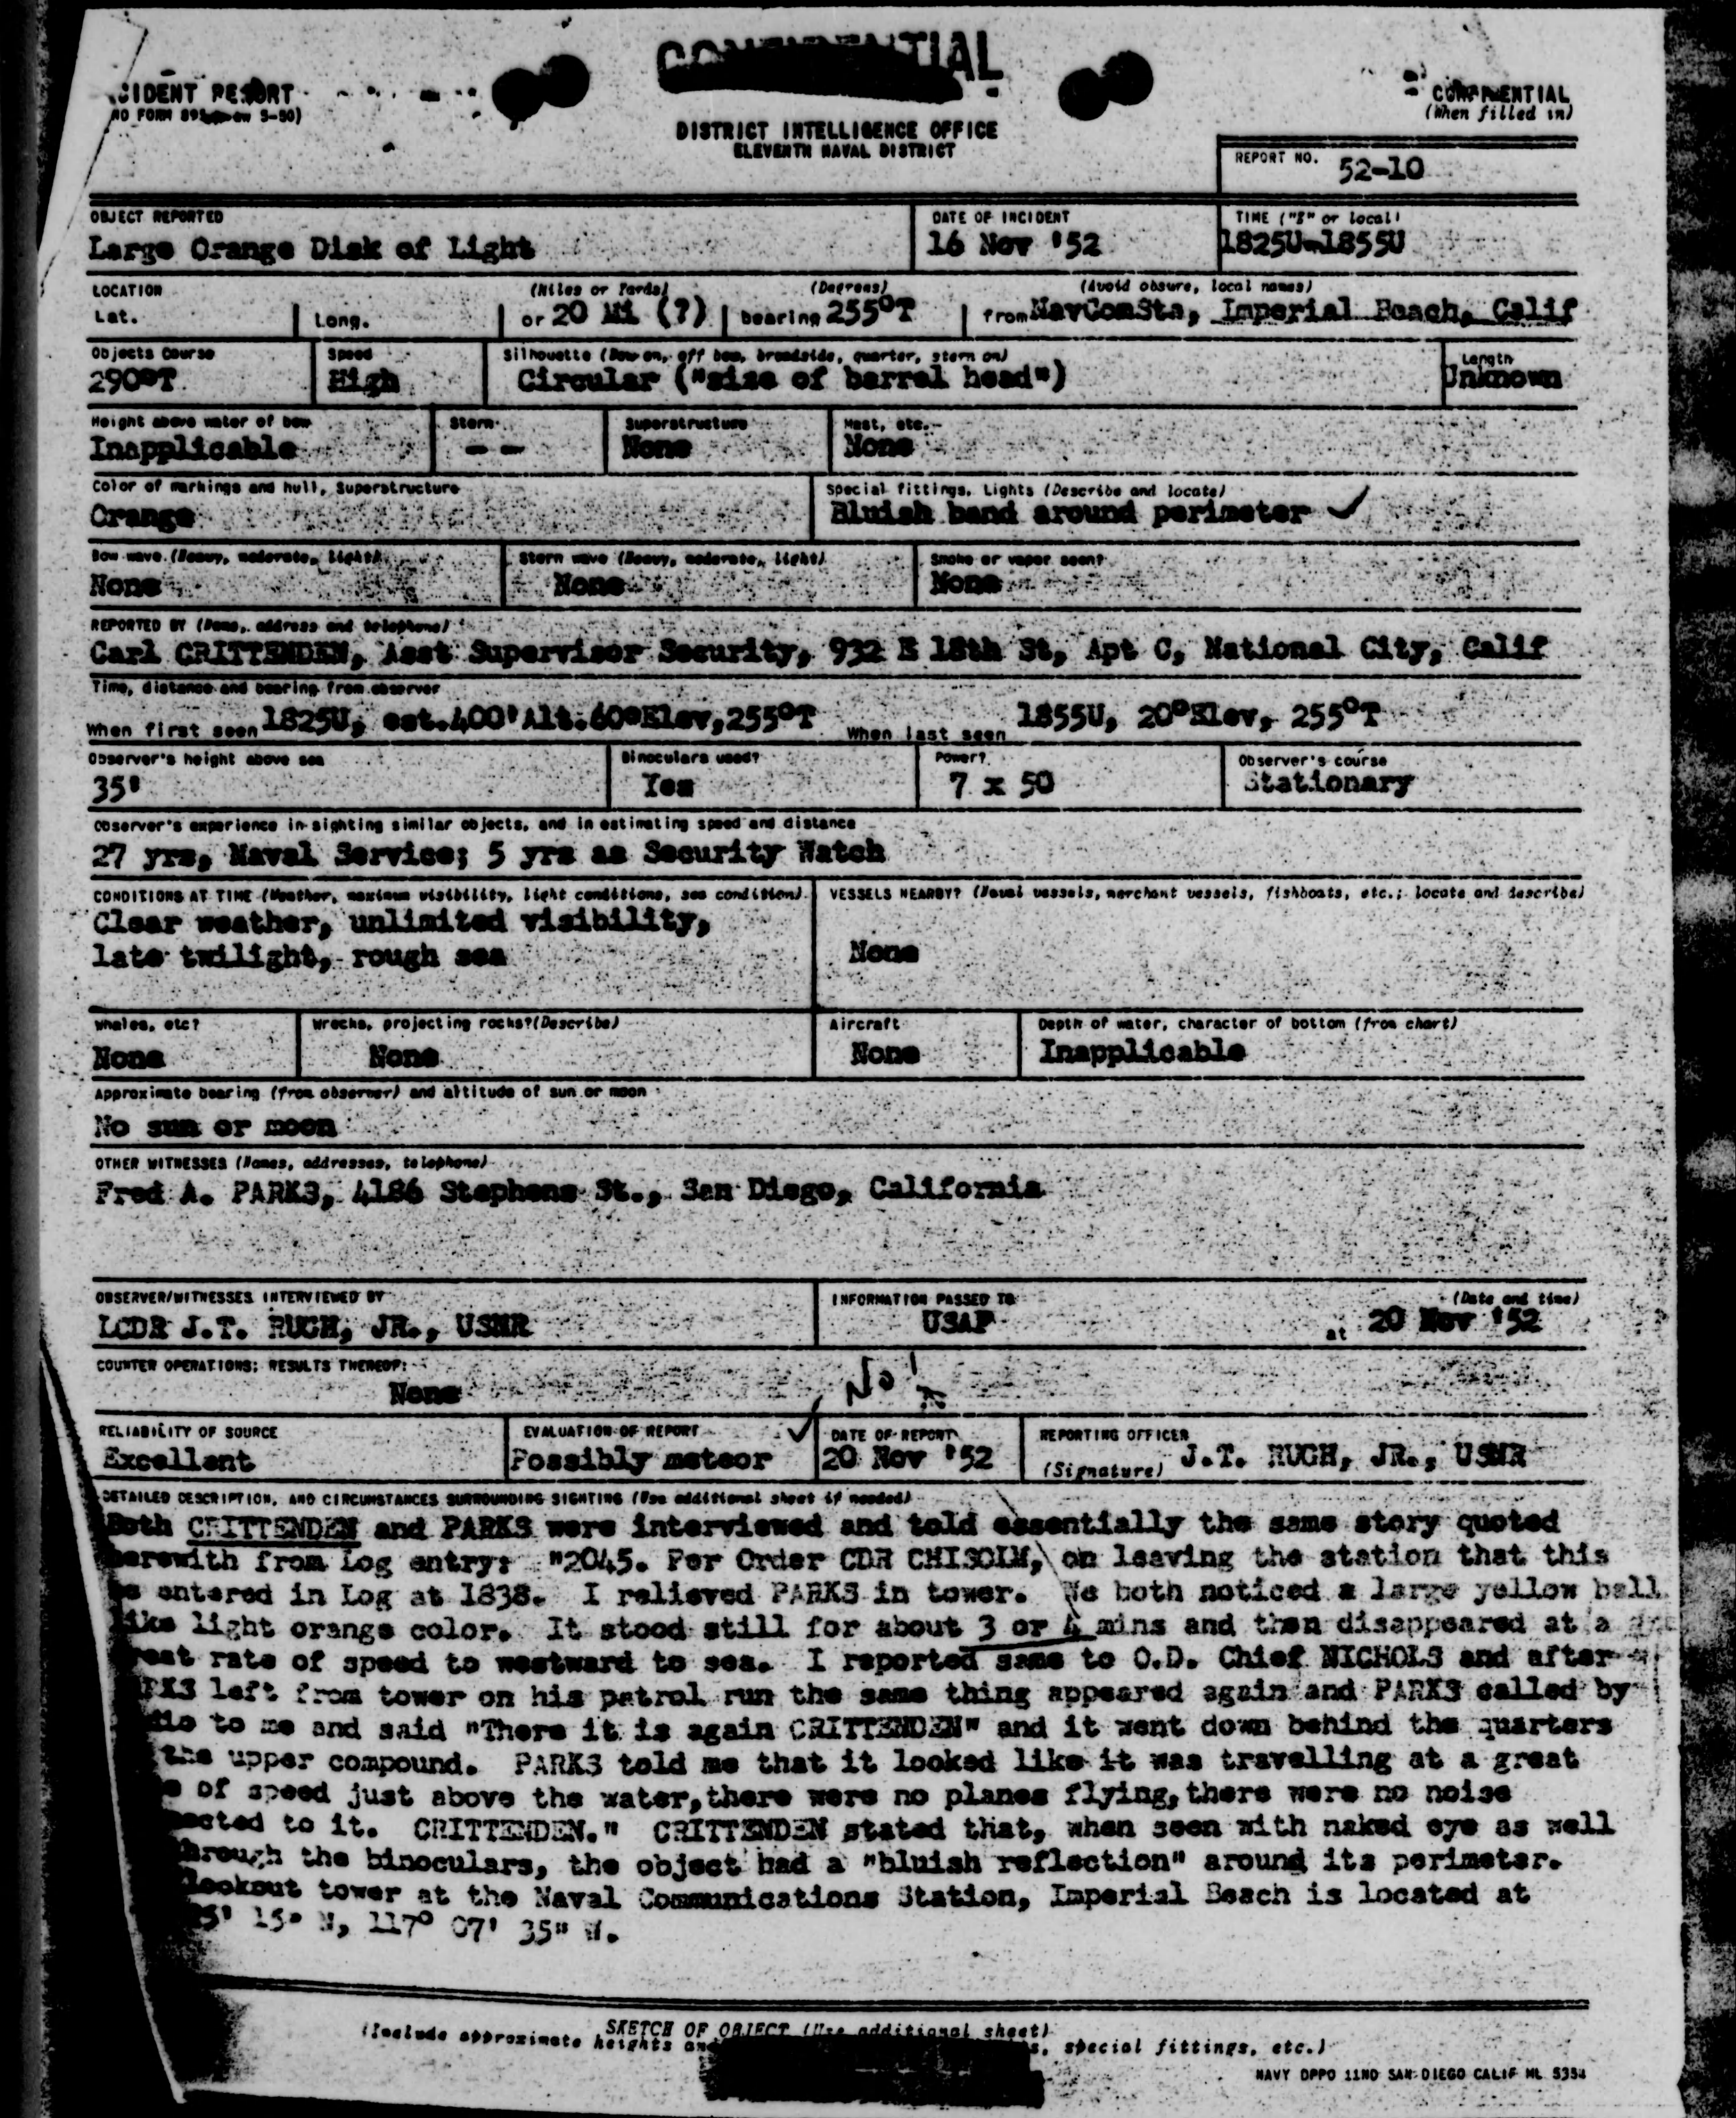 CONFIDENTIAL
CIDENT REPORT
CONFIDENTIAL
(When filled in)
DISTRICT INTELLIGENCE OFFICE
ELEVENTH NAVAL DISTRICT
REPORT NO. 52-10
OBJECT REPORTED
Large Orange Disk of Light
DATE OF INCIDENT
16 Nov '52
TIME ("Z" or local)
1825U-1855U
LOCATION
Lat.
Long.
(Miles or Yards)
or 20 Mi (?)
(Degrees)
bearing 255°T
(Avoid obsure, local names)
from NavComSta, Imperial Beach, Calif
Objects Course
290°T
Speed
High
Silhouette (Bow on, off bow, broadside, quarter, stern on)
Circular ("size of barrel head")
Length
Unknown
Height above water of bow
Inapplicable
Stern
- -
Superstructure
None
Mast, etc.
None
Color of markings and hull, Superstructure
Orange
Special fittings, Lights (Describe and locate)
Bluish band around perimeter
Bow wave (Heavy, moderate, light)
None
Stern wave (Heavy, moderate, light)
None
Smoke or vapor seen?
None
REPORTED BY (Name, address and telephone)
Carl CRITTENDEN, Asst Supervisor Security, 932 E 18th St, Apt C, National City, Calif
Time, distance and bearing from observer
When first seen 1825U, est.400'Alt.60°Elev,255°T
When last seen 1855U, 20°Elev, 255°T
Observer's height above sea
35'
Binoculars used?
Yes
Power?
7 x 50
Observer's course
Stationary
Observer's experience in sighting similar objects, and in estimating speed and distance
27 yrs, Naval Service; 5 yrs as Security Watch
CONDITIONS AT TIME (Weather, maximum visibility, light conditions, sea condition)
Clear weather, unlimited visibility,
late twilight, rough sea
VESSELS NEARBY? (Naval vessels, merchant vessels, fishboats, etc.; locate and describe)
None
Whales, etc?
None
Wrecks, projecting rocks?(Describe)
None
Aircraft
None
Depth of water, character of bottom (from chart)
Inapplicable
Approximate bearing (from observer) and altitude of sun or moon
No sun or moon
OTHER WITNESSES (Names, addresses, telephone)
Fred A. PARKS, 4186 Stephens St., San Diego, California
OBSERVER/WITNESSES INTERVIEWED BY
LCDR J.T. RUGH, JR., USNR
INFORMATION PASSED TO
USAF
(Date and time)
at 20 Nov '52
COUNTER OPERATIONS; RESULTS THEREOF:
None
No!
RELIABILITY OF SOURCE
Excellent
EVALUATION OF REPORT
Possibly meteor
DATE OF REPORT
20 Nov '52
REPORTING OFFICER
(Signature) J.T. RUGH, JR., USNR
DETAILED DESCRIPTION, AND CIRCUMSTANCES SURROUNDING SIGHTING (Use additional sheet if needed)
Both CRITTENDEN and PARKS were interviewed and told essentially the same story quoted
herewith from Log entry: "2045. Per Order CDR CHISOLM, on leaving the station that this
be entered in Log at 1838. I relieved PARKS in tower. We both noticed a large yellow ball
like light orange color. It stood still for about 3 or 4 mins and then disappeared at a
great rate of speed to westward to sea. I reported same to O.D. Chief NICHOLS and after
RKS left from tower on his patrol run the same thing appeared again and PARKS called by
dio to me and said "There it is again CRITTENDEN" and it went down behind the quarters
the upper compound. PARKS told me that it looked like it was travelling at a great
e of speed just above the water,there were no planes flying,there were no noise
ected to it. CRITTENDEN." CRITTENDEN stated that, when seen with naked eye as well
through the binoculars, the object had a "bluish reflection" around its perimeter.
lookout tower at the Naval Communications Station, Imperial Beach is located at
35' 15" N, 117° 07' 35" W.
SKETCH OF OBJECT (Use additional sheet)
(Include approximate heights and s, special fittings, etc.)
NAVY DPPO 11ND SAN DIEGO CALIF